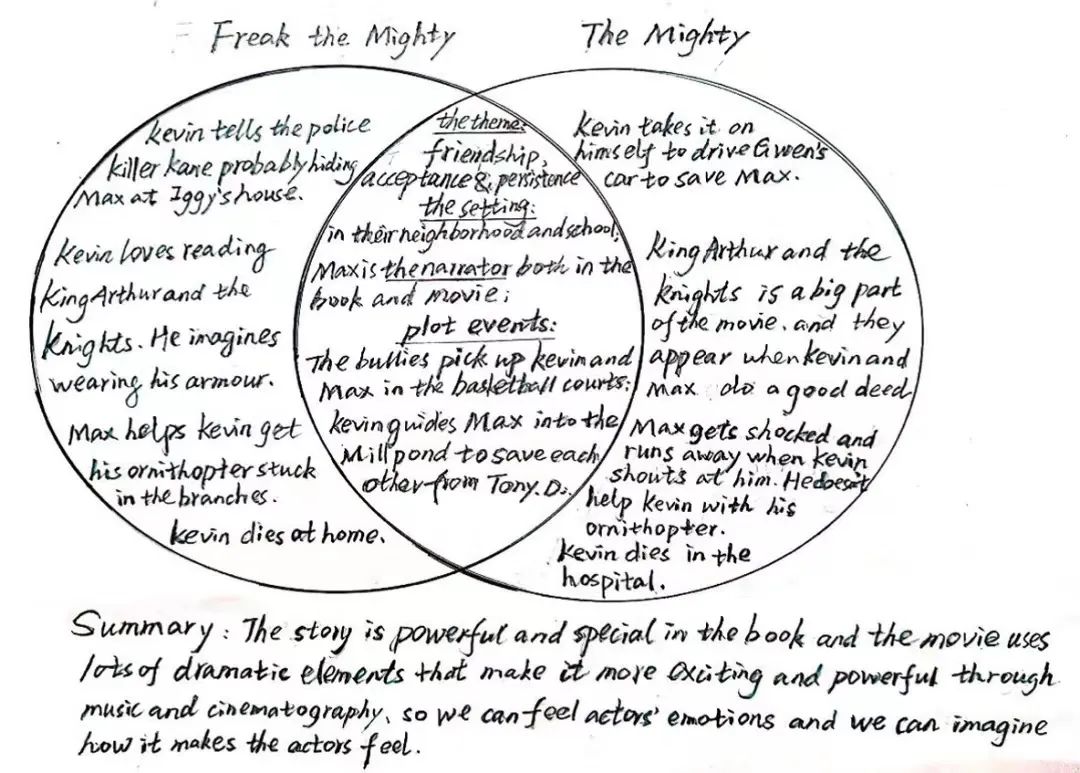 Freak the Mighty
kevin tells the police
killer kane probably hiding
Max at Iggy's house.
Kevin loves reading
King Arthur and the
Knights. He imagines
wearing his armour.
Max helps kevin get
his ornithopter stuck
in the branches.
kevin dies at home.
the theme:
friendship,
acceptance &, persistence
the setting:
in their neighborhood and school;
Max is the narrator both in the
book and movie;
plot events:
The bullies pick up kevin and
Max in the basketball courts;
kevin guides Max into the
Mill pond to save each
other from Tony. D.
The Mighty
Kevin takes it on
himself to drive Gwen's
car to save Max.
King Arthur and the
knights is a big part
of the movie. and they
appear when kevin and
Max do a good deed
Max gets shocked and
runs away when kevin
shouts at him. He doesn't
help kevin with his
ornithopter.
kevin dies in the
hospital.
Summary: The story is powerful and special in the book and the movie uses
lots of dramatic elements that make it more exciting and powerful through
music and cinematography, so we can feel actors' emotions and we can imagine
how it makes the actors feel.